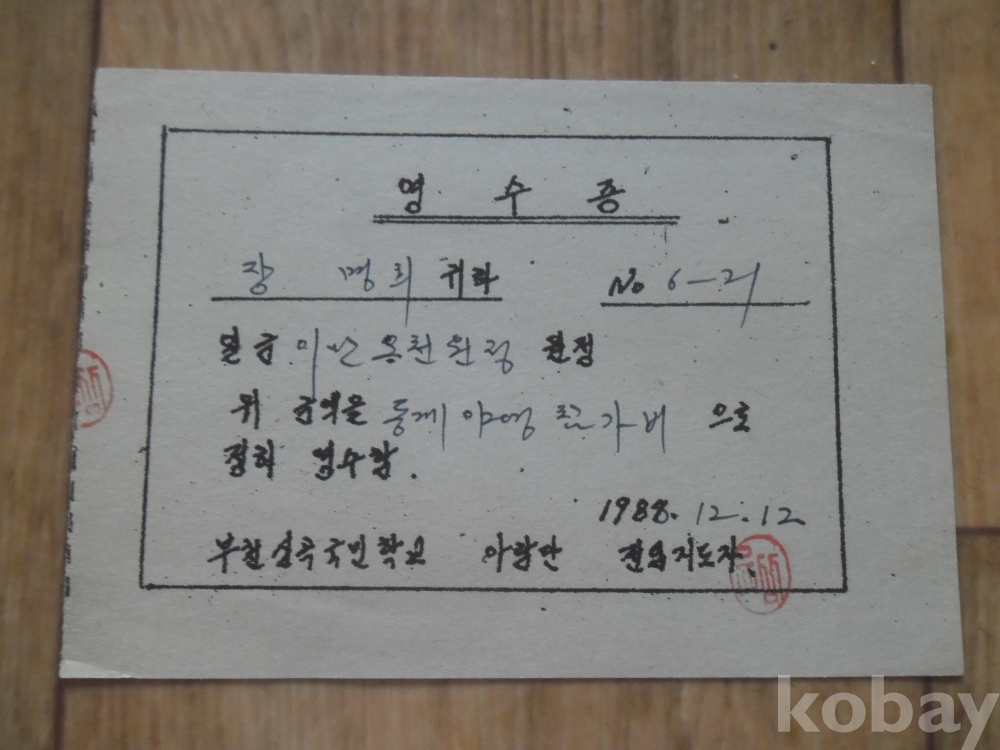 영 수 증
장 명희 귀하 No 6-21
일금 이만오천원정 원정
위 금액을 동계 야영 참가비 으로
정히 영수함.
1988. 12. 12.
부천심곡국민학교 아람단 전임지도자
kobay